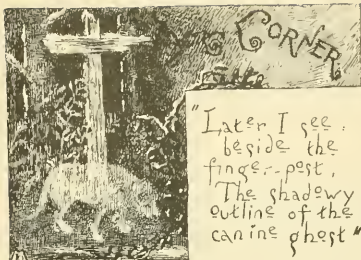 CORNER.
"Later I see.
beside the
finger-post,
The shadowy
outline of the
canine ghost"